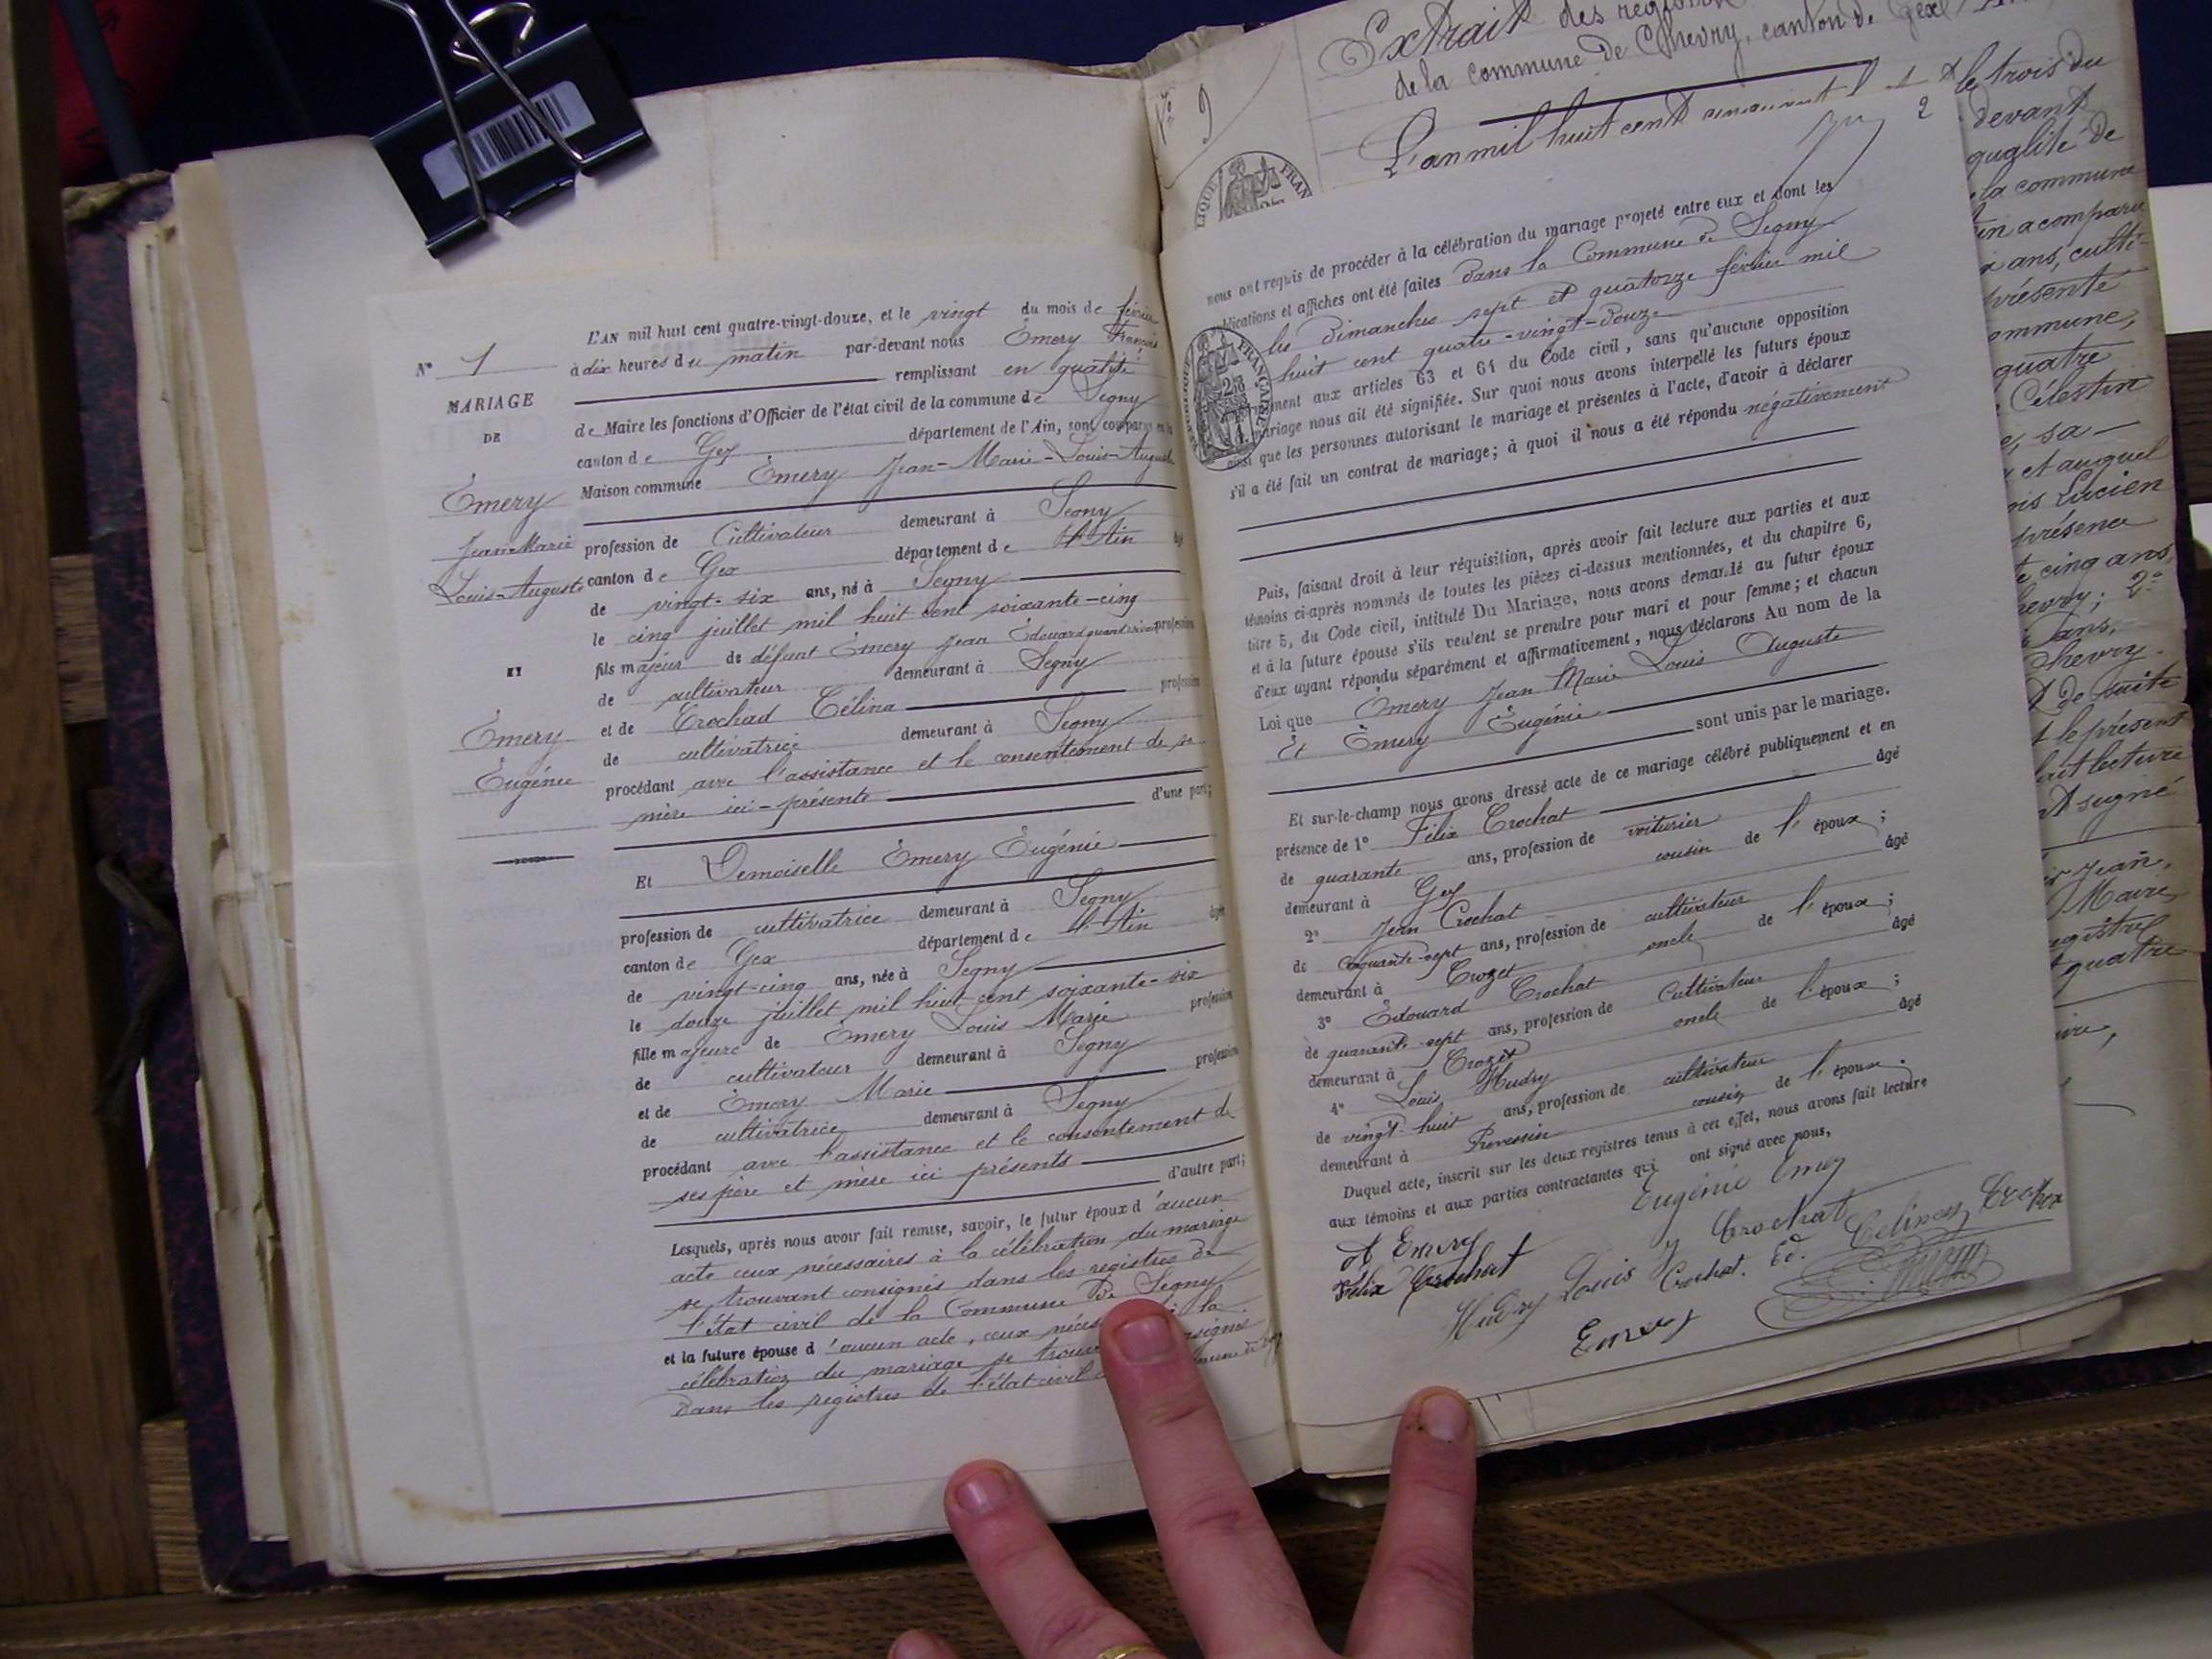 N° 1
MARIAGE
DE
Emery
Jean-Marie
Louis-Auguste
ET
Emery
Eugénie
L'AN mil huit cent quatre-vingt-douze, et le vingt du mois de février
à dix heures du matin par-devant nous Emery François
remplissant en qualité
de Maire les fonctions d'Officier de l'état civil de la commune de Segny
canton de Gex département de l'Ain, sont comparus en la
Maison commune Emery Jean-Marie-Louis-Auguste
profession de Cultivateur demeurant à Segny
canton de Gex département de l'Ain âgé
de vingt-six ans, né à Segny
le cinq juillet mil huit cent soixante-cinq
fils majeur de défunt Emery Jean Edouard quand vivait profession
de cultivateur demeurant à Segny
et de Crochad Célina profession
de cultivatrice demeurant à Segny
procédant avec l'assistance et le consentement de sa
mère ici-présente d'une part;
Et Demoiselle Emery Eugénie
profession de cultivatrice demeurant à Segny
canton de Gex département de l'Ain âgée
de vingt-cinq ans, née à Segny
le douze juillet mil huit cent soixante-six
fille majeure de Emery Louis Marie profession
de cultivateur demeurant à Segny
et de Emery Marie profession
de cultivatrice demeurant à Segny
procédant avec l'assistance et le consentement de
ses père et mère ici présents d'autre part;
Lesquels, après nous avoir fait remise, savoir, le futur époux d'aucun
acte ceux nécessaires à la célébration du mariage
se trouvant consignés dans les registres de
l'état civil de la Commune de Segny
et la future épouse d'aucun acte, ceux à la
célébration du mariage se
dans les registres de l'état civil
N° 9
Extrait des
de la commune de Chevry, canton de Gex
L'an mil huit cent le trois du
2
nous ont requis de procéder à la célébration du mariage projeté entre eux et dont les
publications et affiches ont été faites dans la Commune de Segny
les dimanches sept et quatorze février mil
huit cent quatre-vingt-douze
aux articles 63 et 64 du Code civil, sans qu'aucune opposition
mariage nous ait été signifiée. Sur quoi nous avons interpellé les futurs époux
ainsi que les personnes autorisant le mariage et présentes à l'acte, d'avoir à déclarer
s'il a été fait un contrat de mariage; à quoi il nous a été répondu négativement
Puis, faisant droit à leur réquisition, après avoir fait lecture aux parties et aux
témoins ci-après nommés de toutes les pièces ci-dessus mentionnées, et du chapitre 6,
titre 5, du Code civil, intitulé Du Mariage, nous avons demandé au futur époux
et à la future épouse s'ils veulent se prendre pour mari et pour femme; et chacun
d'eux ayant répondu séparément et affirmativement, nous déclarons Au nom de la
Loi que Emery Jean Marie Louis Auguste
Et Emery Eugénie sont unis par le mariage.
Et sur-le-champ nous avons dressé acte de ce mariage célébré publiquement et en
présence de 1° Félix Crochat âgé
de quarante ans, profession de voiturier
demeurant à Gex cousin de l'époux;
2° Jean Crochat âgé
de cinquante-sept ans, profession de cultivateur
demeurant à Crozet oncle de l'époux;
3° Edouard Crochat âgé
de quarante-sept ans, profession de Cultivateur
demeurant à Crozet oncle de l'époux;
4° Louis Hudry âgé
de vingt-huit ans, profession de cultivateur
demeurant à Prevessin cousin de l'époux.
Duquel acte, inscrit sur les deux registres tenus à cet effet, nous avons fait lecture
aux témoins et aux parties contractantes qui ont signé avec nous,
A Emery Eugénie Emery
Félix Crochat J Crochat Celina Crochat
Hudry Louis Crochat. Ed.
Emery
devant
qualité de
la commune
a comparu
ans, culti-
présente
commune,
quatre
Célestin
sa
et auquel
Lucien
présence
cinq ans,
Chevry; 2°
ans,
Chevry.
de suite
le présent
fait lecture
signé
Jean,
Maire
quatre